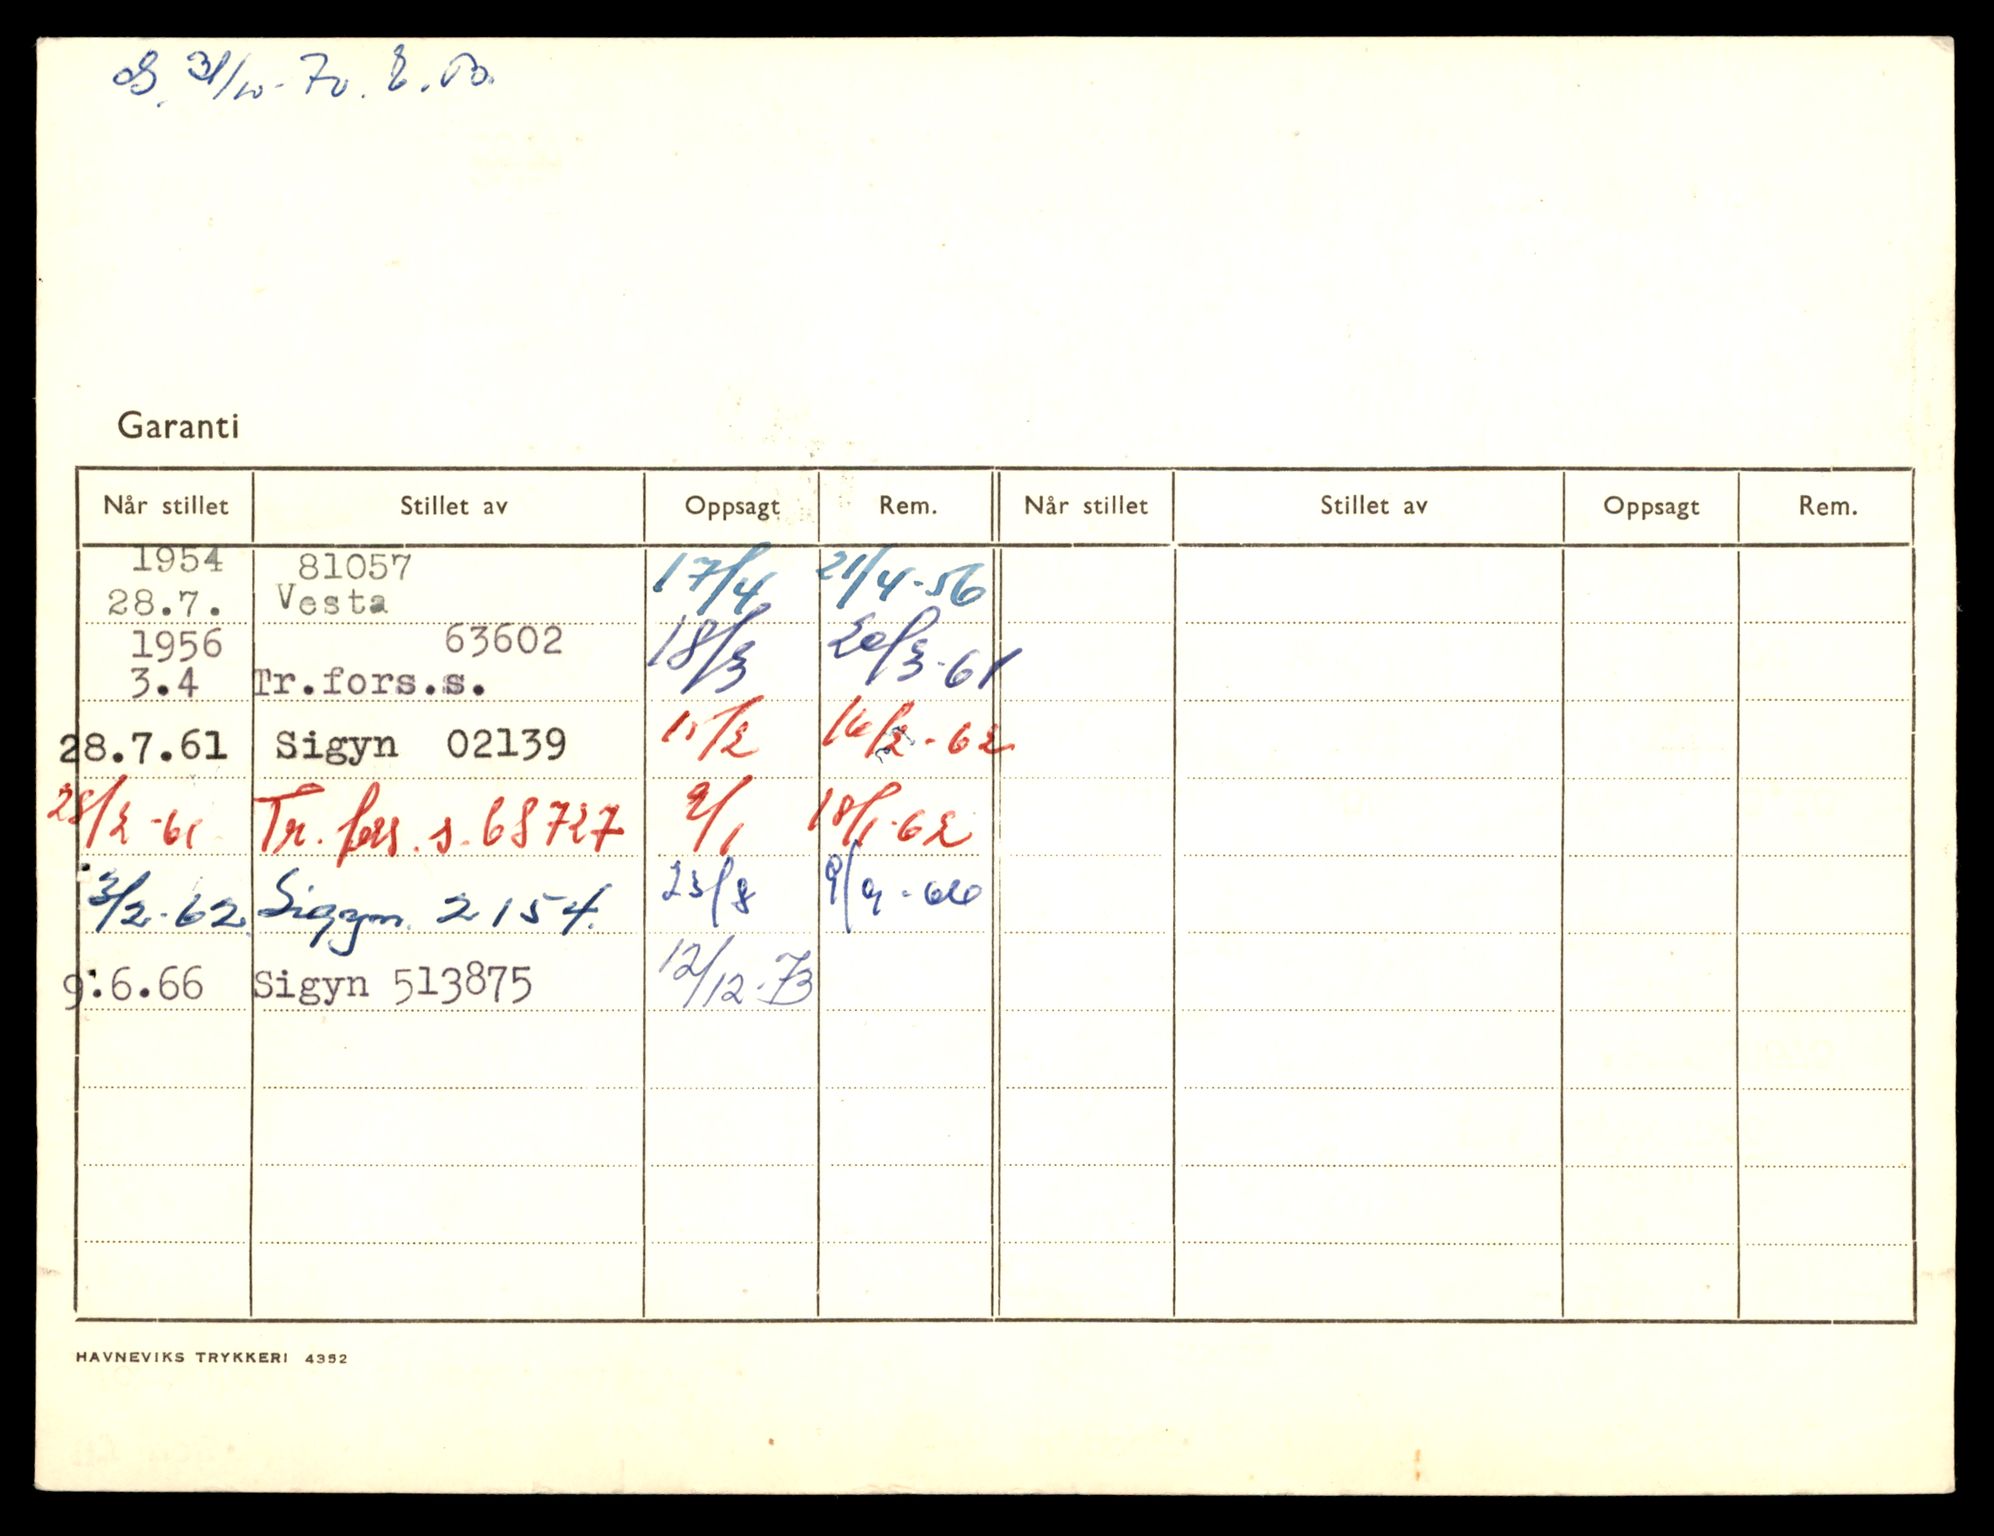 S. 31/10-70. E.B.
Garanti
Når stillet Stillet av Oppsagt Rem. Når stillet Stillet av Oppsagt Rem.
1954 81057 17/4 21/4-56
28.7. Vesta
1956 63602 18/3 20/3-61
3.4 Tr.fors.s.
28.7.61 Sigyn 02139 15/2 16/2-62
28/2-61 Tr. fors. s. 68727 9/1 18/1-62
3/2-62. Sigyn. 2154. 23/8 9/9-66
9.6.66 Sigyn 513875 12/12-73
HAVNEVIKS TRYKKERI 4352